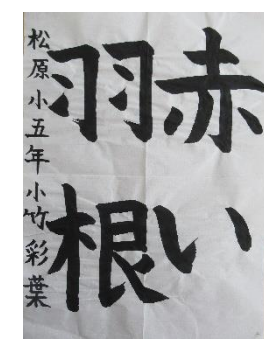 赤い
羽根
松原小五年小竹彩葉